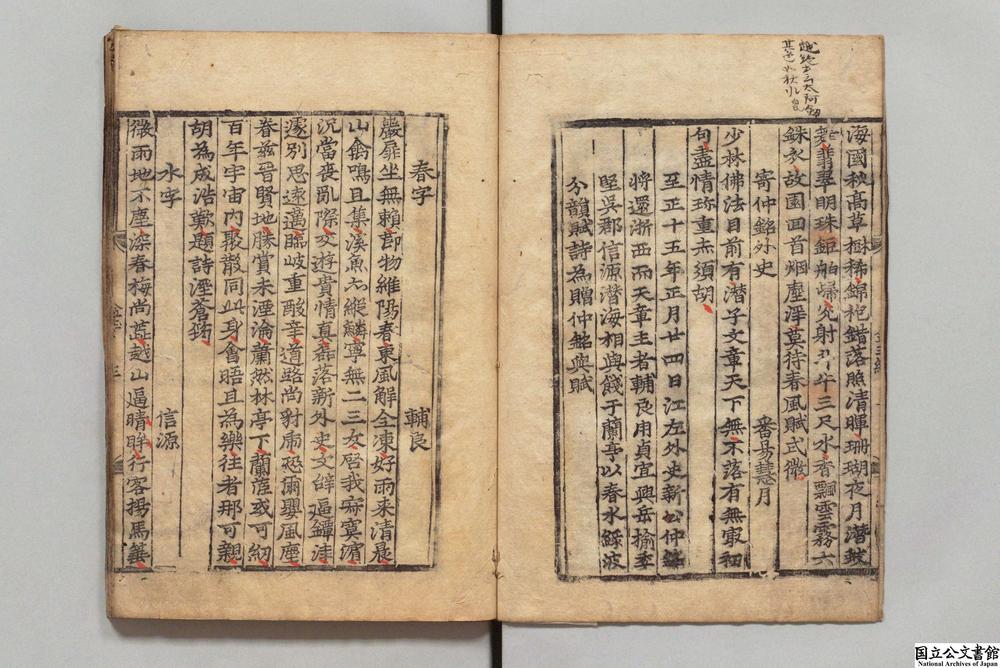 海國秋高草樹稀錦袍錯落照清暉珊瑚夜月潛鮫
翡翠明珠鉅舶歸光射斗牛三尺水香飄雲霧六
銖衣故園回首烟塵浮莫待春風賦式微
寄仲銘外史
番易慧月
少林佛法目前有潛子文章天下無不落有無最初
句盡情珎重赤須胡
至正十五年正月廿四日江左外史新公仲銘
將還浙西而天章主者輔良用貞宜興岳榆季
堅吳郡信源潛海相與餞于蘭亭以春水綠波
分韻賦詩為贈仲銘與賦
春字
輔良
巖扉坐無賴節物維陽春東風解全凍好雨来清晨
山禽鳴且集溪魚亦縱鱗寧無二三友啓我寂寞濵
况當喪亂際交遊貴情真磊落新外史文辭逼鐔津
遽別思逺邁臨岐重酸辛道路尚豺虎恐爾興風塵
眷兹晉賢地勝賞未湮淪蕭然林亭下蘭茝或可紉
百年宇宙内聚散同此身會晤且為樂往者那可親
胡為成浩歎題詩溼蒼珉
水字
信源
微雨地不塵深春梅尚蘂越山逼晴眸行客揚馬箠
國立公文書館
National Archives of Japan